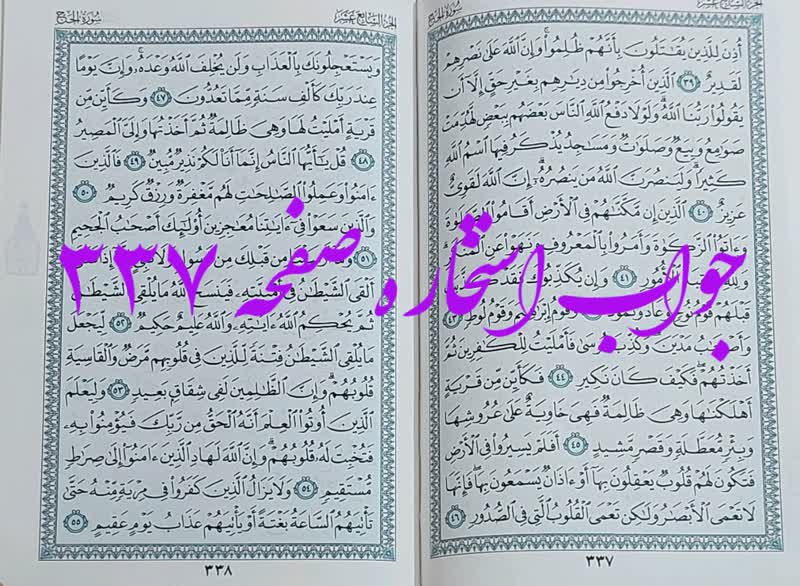 الجزء السابع عشر
سورة الحج
أُذِنَ لِلَّذِينَ يُقَٰتَلُونَ بِأَنَّهُمْ ظُلِمُوا۟ وَإِنَّ ٱللَّهَ عَلَىٰ نَصْرِهِمْ
لَقَدِيرٌ ٣٩ ٱلَّذِينَ أُخْرِجُوا۟ مِن دِيَٰرِهِم بِغَيْرِ حَقٍّ إِلَّآ أَن
يَقُولُوا۟ رَبُّنَا ٱللَّهُ وَلَوْلَا دَفْعُ ٱللَّهِ ٱلنَّاسَ بَعْضَهُم بِبَعْضٍ لَّهُدِّمَتْ
صَوَٰمِعُ وَبِيَعٌ وَصَلَوَٰتٌ وَمَسَٰجِدُ يُذْكَرُ فِيهَا ٱسْمُ ٱللَّهِ
كَثِيرًا وَلَيَنصُرَنَّ ٱللَّهُ مَن يَنصُرُهُۥٓ إِنَّ ٱللَّهَ لَقَوِىٌّ
عَزِيزٌ ٤٠ ٱلَّذِينَ إِن مَّكَّنَّٰهُمْ فِى ٱلْأَرْضِ أَقَامُوا۟ ٱلصَّلَوٰةَ
وَءَاتَوُا۟ ٱلزَّكَوٰةَ وَأَمَرُوا۟ بِٱلْمَعْرُوفِ وَنَهَوْا۟ عَنِ
ٱلْأُمُورِ ٤١ وَإِن يُكَذِّبُوكَ فَقَدْ
قَبْلَهُمْ قَوْمُ نُوحٍ وَعَادٌ وَثَمُودُ وَقَوْمُ إِبْرَٰهِيمَ وَقَوْمُ لُوطٍ
مَدْيَنَ وَكُذِّبَ مُوسَىٰ فَأَمْلَيْتُ لِلْكَٰفِرِينَ ثُمَّ
أَخَذْتُهُمْ فَكَيْفَ كَانَ نَكِيرِ ٤٤ فَكَأَيِّن مِّن قَرْيَةٍ
أَهْلَكْنَٰهَا وَهِىَ ظَالِمَةٌ فَهِىَ خَاوِيَةٌ عَلَىٰ عُرُوشِهَا
وَبِئْرٍ مُّعَطَّلَةٍ وَقَصْرٍ مَّشِيدٍ ٤٥ أَفَلَمْ يَسِيرُوا۟ فِى ٱلْأَرْضِ
فَتَكُونَ لَهُمْ قُلُوبٌ يَعْقِلُونَ بِهَآ أَوْ ءَاذَانٌ يَسْمَعُونَ بِهَا فَإِنَّهَا
لَا تَعْمَى ٱلْأَبْصَٰرُ وَلَٰكِن تَعْمَى ٱلْقُلُوبُ ٱلَّتِى فِى ٱلصُّدُورِ ٤٦
٣٣٧
الجزء السابع عشر
سورة الحج
وَيَسْتَعْجِلُونَكَ بِٱلْعَذَابِ وَلَن يُخْلِفَ ٱللَّهُ وَعْدَهُۥ وَإِنَّ يَوْمًا
عِندَ رَبِّكَ كَأَلْفِ سَنَةٍ مِّمَّا تَعُدُّونَ ٤٧ وَكَأَيِّن مِّن
قَرْيَةٍ أَمْلَيْتُ لَهَا وَهِىَ ظَالِمَةٌ ثُمَّ أَخَذْتُهَا وَإِلَىَّ ٱلْمَصِيرُ
٤٨ قُلْ يَٰٓأَيُّهَا ٱلنَّاسُ إِنَّمَآ أَنَا۠ لَكُمْ نَذِيرٌ مُّبِينٌ ٤٩ فَٱلَّذِينَ
ءَامَنُوا۟ وَعَمِلُوا۟ ٱلصَّٰلِحَٰتِ لَهُم مَّغْفِرَةٌ وَرِزْقٌ كَرِيمٌ ٥٠
وَٱلَّذِينَ سَعَوْا۟ فِىٓ ءَايَٰتِنَا مُعَٰجِزِينَ أُو۟لَٰٓئِكَ أَصْحَٰبُ ٱلْجَحِيمِ
٥١ مِن قَبْلِكَ مِن رَّسُولٍ وَلَا نَبِىٍّ إِلَّآ إِذَا
أَلْقَى ٱلشَّيْطَٰنُ فِىٓ أُمْنِيَّتِهِۦ فَيَنسَخُ ٱللَّهُ مَا يُلْقِى ٱلشَّيْطَٰنُ
ثُمَّ يُحْكِمُ ٱللَّهُ ءَايَٰتِهِۦ وَٱللَّهُ عَلِيمٌ حَكِيمٌ ٥٢ لِّيَجْعَلَ
مَا يُلْقِى ٱلشَّيْطَٰنُ فِتْنَةً لِّلَّذِينَ فِى قُلُوبِهِم مَّرَضٌ وَٱلْقَاسِيَةِ
قُلُوبُهُمْ وَإِنَّ ٱلظَّٰلِمِينَ لَفِى شِقَاقٍۭ بَعِيدٍ ٥٣ وَلِيَعْلَمَ
ٱلَّذِينَ أُوتُوا۟ ٱلْعِلْمَ أَنَّهُ ٱلْحَقُّ مِن رَّبِّكَ فَيُؤْمِنُوا۟ بِهِۦ
فَتُخْبِتَ لَهُۥ قُلُوبُهُمْ وَإِنَّ ٱللَّهَ لَهَادِ ٱلَّذِينَ ءَامَنُوٓا۟ إِلَىٰ صِرَٰطٍ
مُّسْتَقِيمٍ ٥٤ وَلَا يَزَالُ ٱلَّذِينَ كَفَرُوا۟ فِى مِرْيَةٍ مِّنْهُ حَتَّىٰ
تَأْتِيَهُمُ ٱلسَّاعَةُ بَغْتَةً أَوْ يَأْتِيَهُمْ عَذَابُ يَوْمٍ عَقِيمٍ ٥٥
٣٣٨
جواب استخاره صفحه ۳۳۷